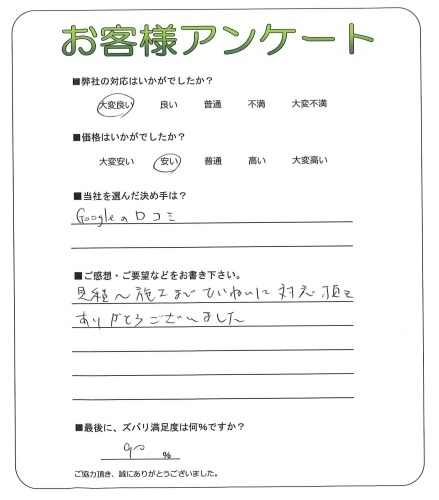 お客様アンケート
■弊社の対応はいかがでしたか？
大変良い 良い 普通 不満 大変不満
■価格はいかがでしたか？
大変安い 安い 普通 高い 大変高い
■当社を選んだ決め手は？
Googleの口コミ
■ご感想・ご要望などをお書き下さい。
見積〜施工までていねいに対応頂き
ありがとうございました
■最後に、ズバリ満足度は何％ですか？
90 %
ご協力頂き、誠にありがとうございました。